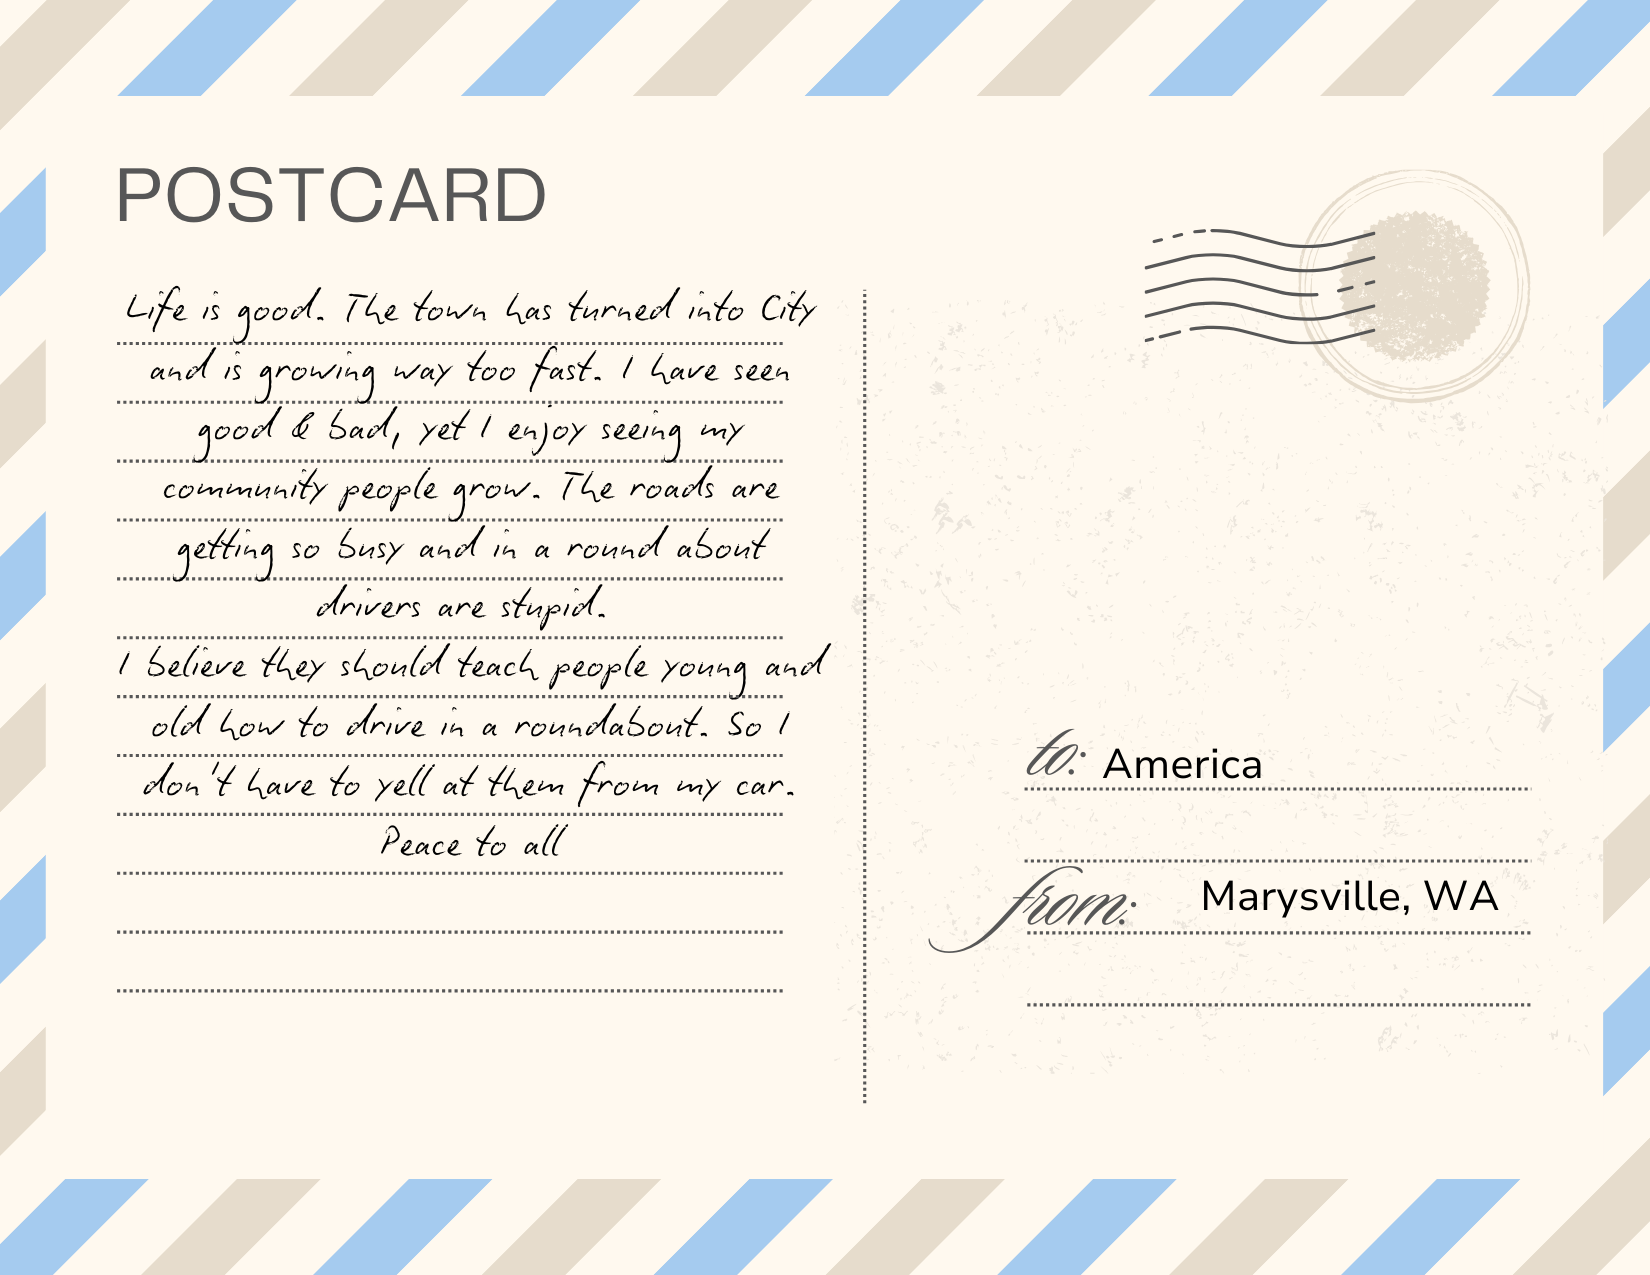 POSTCARD
Life is good. The town has turned into City
and is growing way too fast. I have seen
good & bad, yet I enjoy seeing my
community people grow. The roads are
getting so busy and in a round about
drivers are stupid.
I believe they should teach people young and
old how to drive in a roundabout. So I
don't have to yell at them from my car.
Peace to all
to: America
from: Marysville, WA